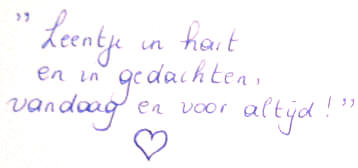 "Leentje in hart
en in gedachten,
vandaag en voor altijd!"